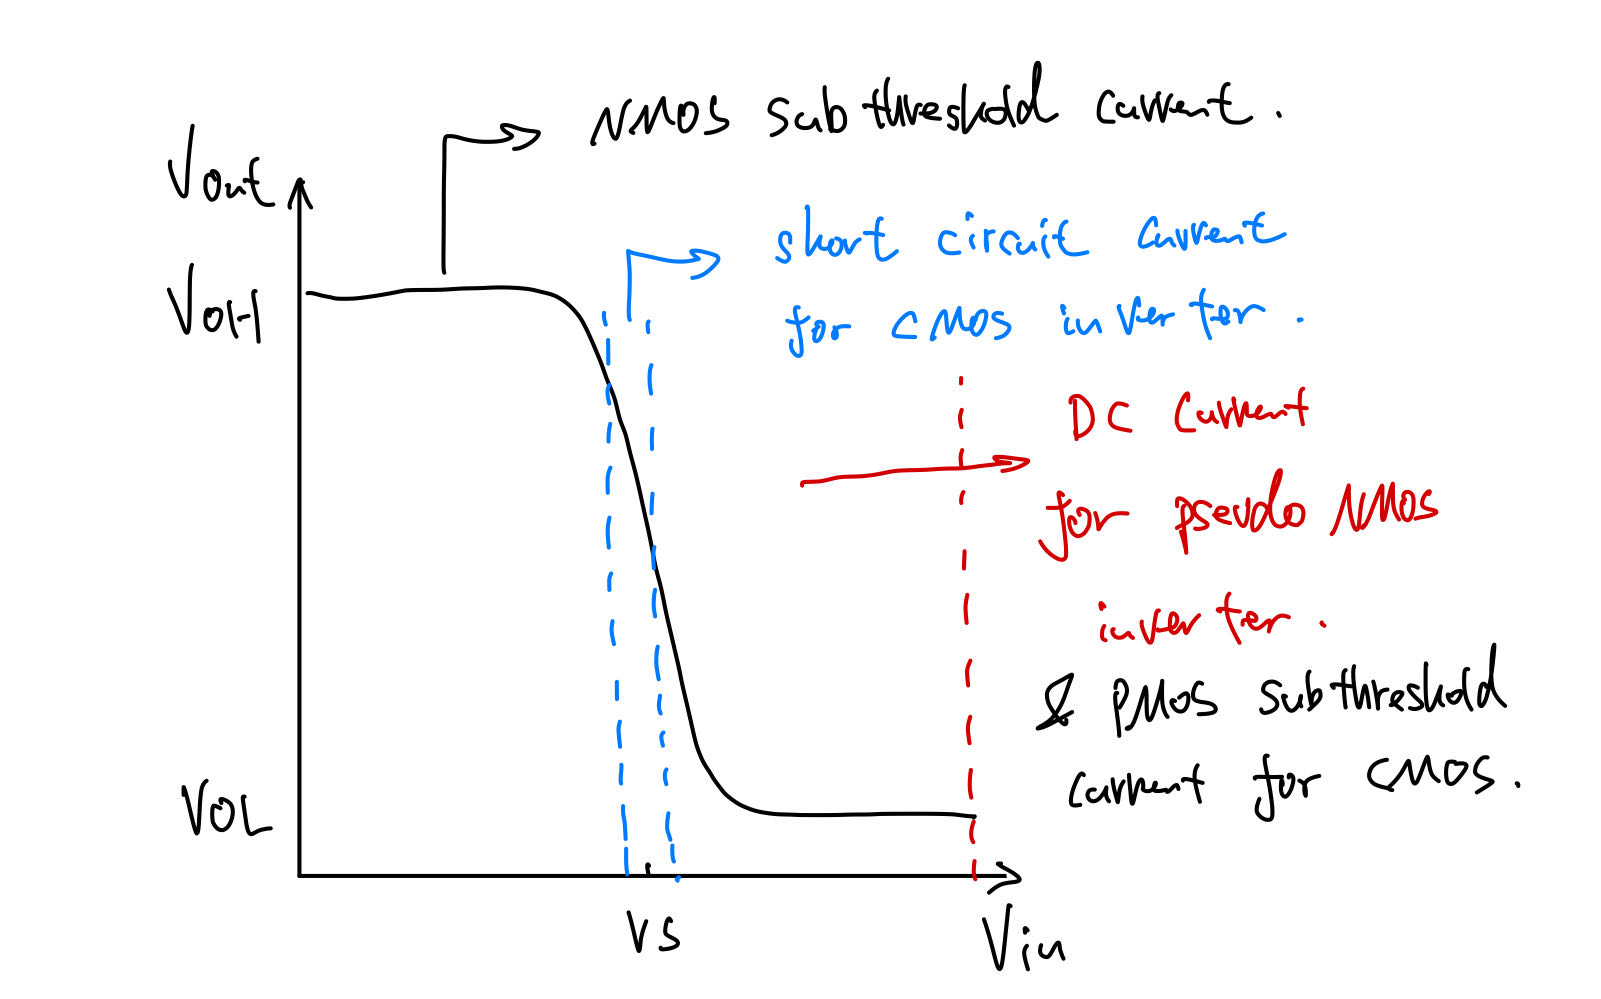 NMOS subthreshold current.
Vout
short circuit current
VOH
for CMOS inverter.
DC current
for pseudo NMOS
inverter.
& PMOS subthreshold
current for CMOS.
VOL
VS
Vin